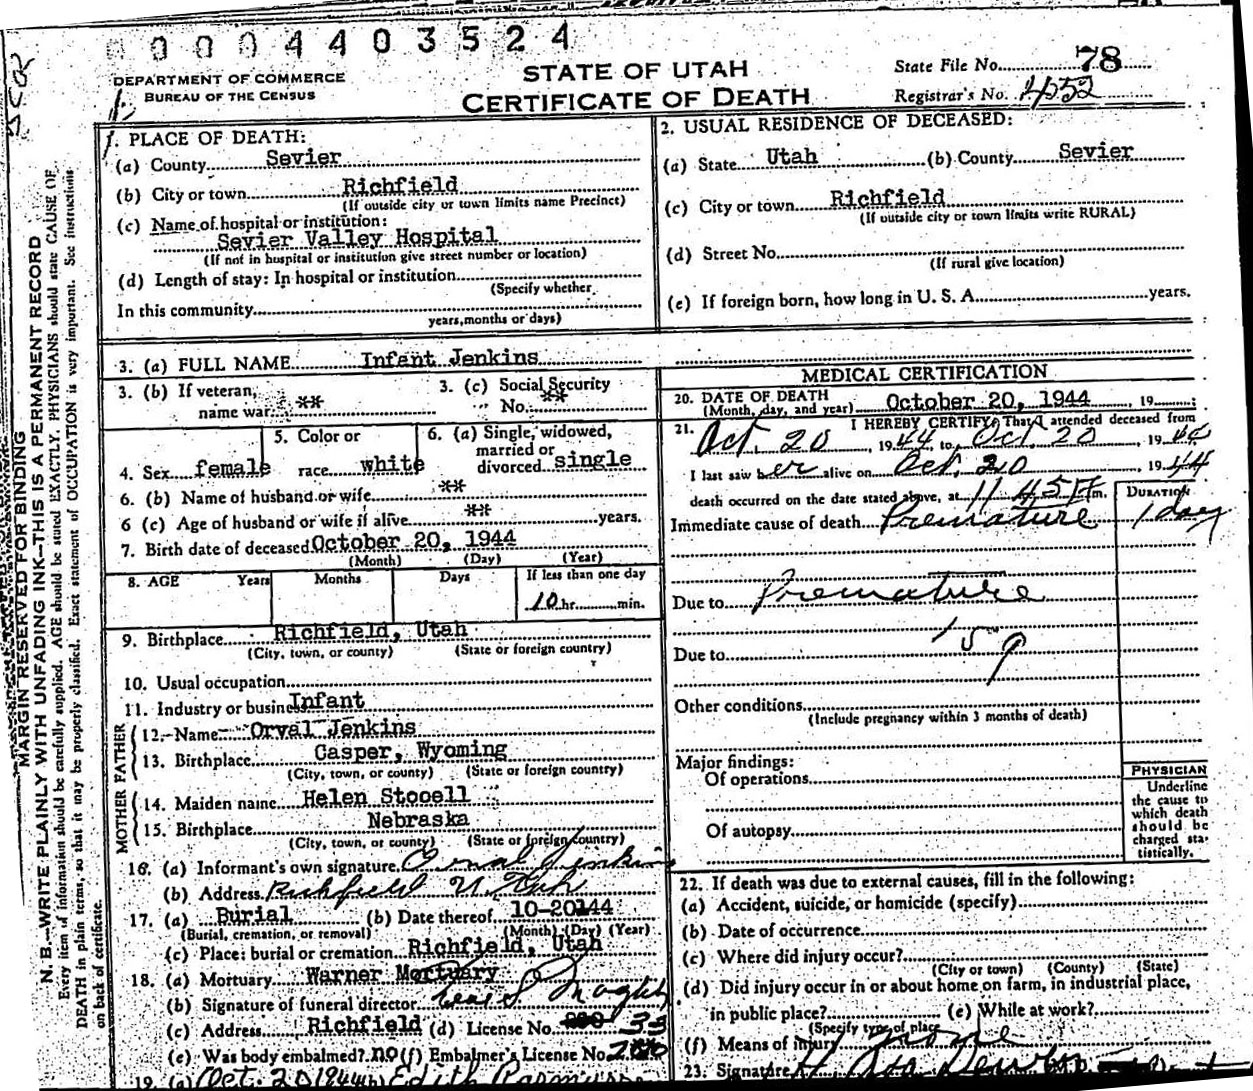 00004403524
DEPARTMENT OF COMMERCE
BUREAU OF THE CENSUS
STATE OF UTAH
CERTIFICATE OF DEATH
State File No. 78
Registrar's No.
MARGIN RESERVED FOR BINDING
N. B.—WRITE PLAINLY WITH UNFADING INK—THIS IS A PERMANENT RECORD
Every item of information should be carefully supplied. AGE should be stated EXACTLY. PHYSICIANS should state CAUSE OF
DEATH in plain terms, so that it may be properly classified. Exact statement of OCCUPATION is very important. See instructions
on back of certificate.
1. PLACE OF DEATH:
(a) County Sevier
(b) City or town Richfield
(If outside city or town limits name Precinct)
(c) Name of hospital or institution:
Sevier Valley Hospital
(If not in hospital or institution give street number or location)
(d) Length of stay: In hospital or institution
(Specify whether
In this community
years, months or days)
2. USUAL RESIDENCE OF DECEASED:
(a) State Utah (b) County Sevier
(c) City or town Richfield
(If outside city or town limits write RURAL)
(d) Street No.
(If rural give location)
(e) If foreign born, how long in U. S. A. years.
3. (a) FULL NAME Infant Jenkins
3. (b) If veteran, name war **
3. (c) Social Security No. **
4. Sex female
5. Color or race white
6. (a) Single, widowed, married or divorced single
6. (b) Name of husband or wife **
6 (c) Age of husband or wife if alive ** years.
7. Birth date of deceased October 20, 1944
(Month) (Day) (Year)
8. AGE Years Months Days If less than one day
10 hr. min.
9. Birthplace Richfield, Utah
(City, town, or county) (State or foreign country)
10. Usual occupation
11. Industry or business Infant
FATHER
12. Name Orval Jenkins
13. Birthplace Casper, Wyoming
(City, town, or county) (State or foreign country)
MOTHER
14. Maiden name Helen Stooell
15. Birthplace Nebraska
(City, town, or county) (State or foreign country)
16. (a) Informant's own signature Orval Jenkins
(b) Address Richfield Utah
17. (a) Burial (b) Date thereof 10-20-44
(Burial, cremation, or removal) (Month) (Day) (Year)
(c) Place: burial or cremation Richfield, Utah
18. (a) Mortuary Warner Mortuary
(b) Signature of funeral director
(c) Address Richfield (d) License No. 33
(e) Was body embalmed? no (f) Embalmer's License No.
19. (a) Oct. 20 1944 (b) Edith
MEDICAL CERTIFICATION
20. DATE OF DEATH
(Month, day, and year) October 20, 1944, 19 ;
21. I HEREBY CERTIFY, That I attended deceased from
Oct. 20, 1944 to Oct 20, 1944
I last saw her alive on Oct. 20, 1944
death occurred on the date stated above, at 11 45 P m.
DURATION
Immediate cause of death Premature 1 day
Due to Premature
Due to 159
Other conditions
(Include pregnancy within 3 months of death)
Major findings:
Of operations
Of autopsy
PHYSICIAN
Underline
the cause to
which death
should be
charged sta-
tistically.
22. If death was due to external causes, fill in the following:
(a) Accident, suicide, or homicide (specify)
(b) Date of occurrence
(c) Where did injury occur?
(City or town) (County) (State)
(d) Did injury occur in or about home, on farm, in industrial place,
in public place? (e) While at work?
(Specify type of place
(f) Means of injury none
23. Signature